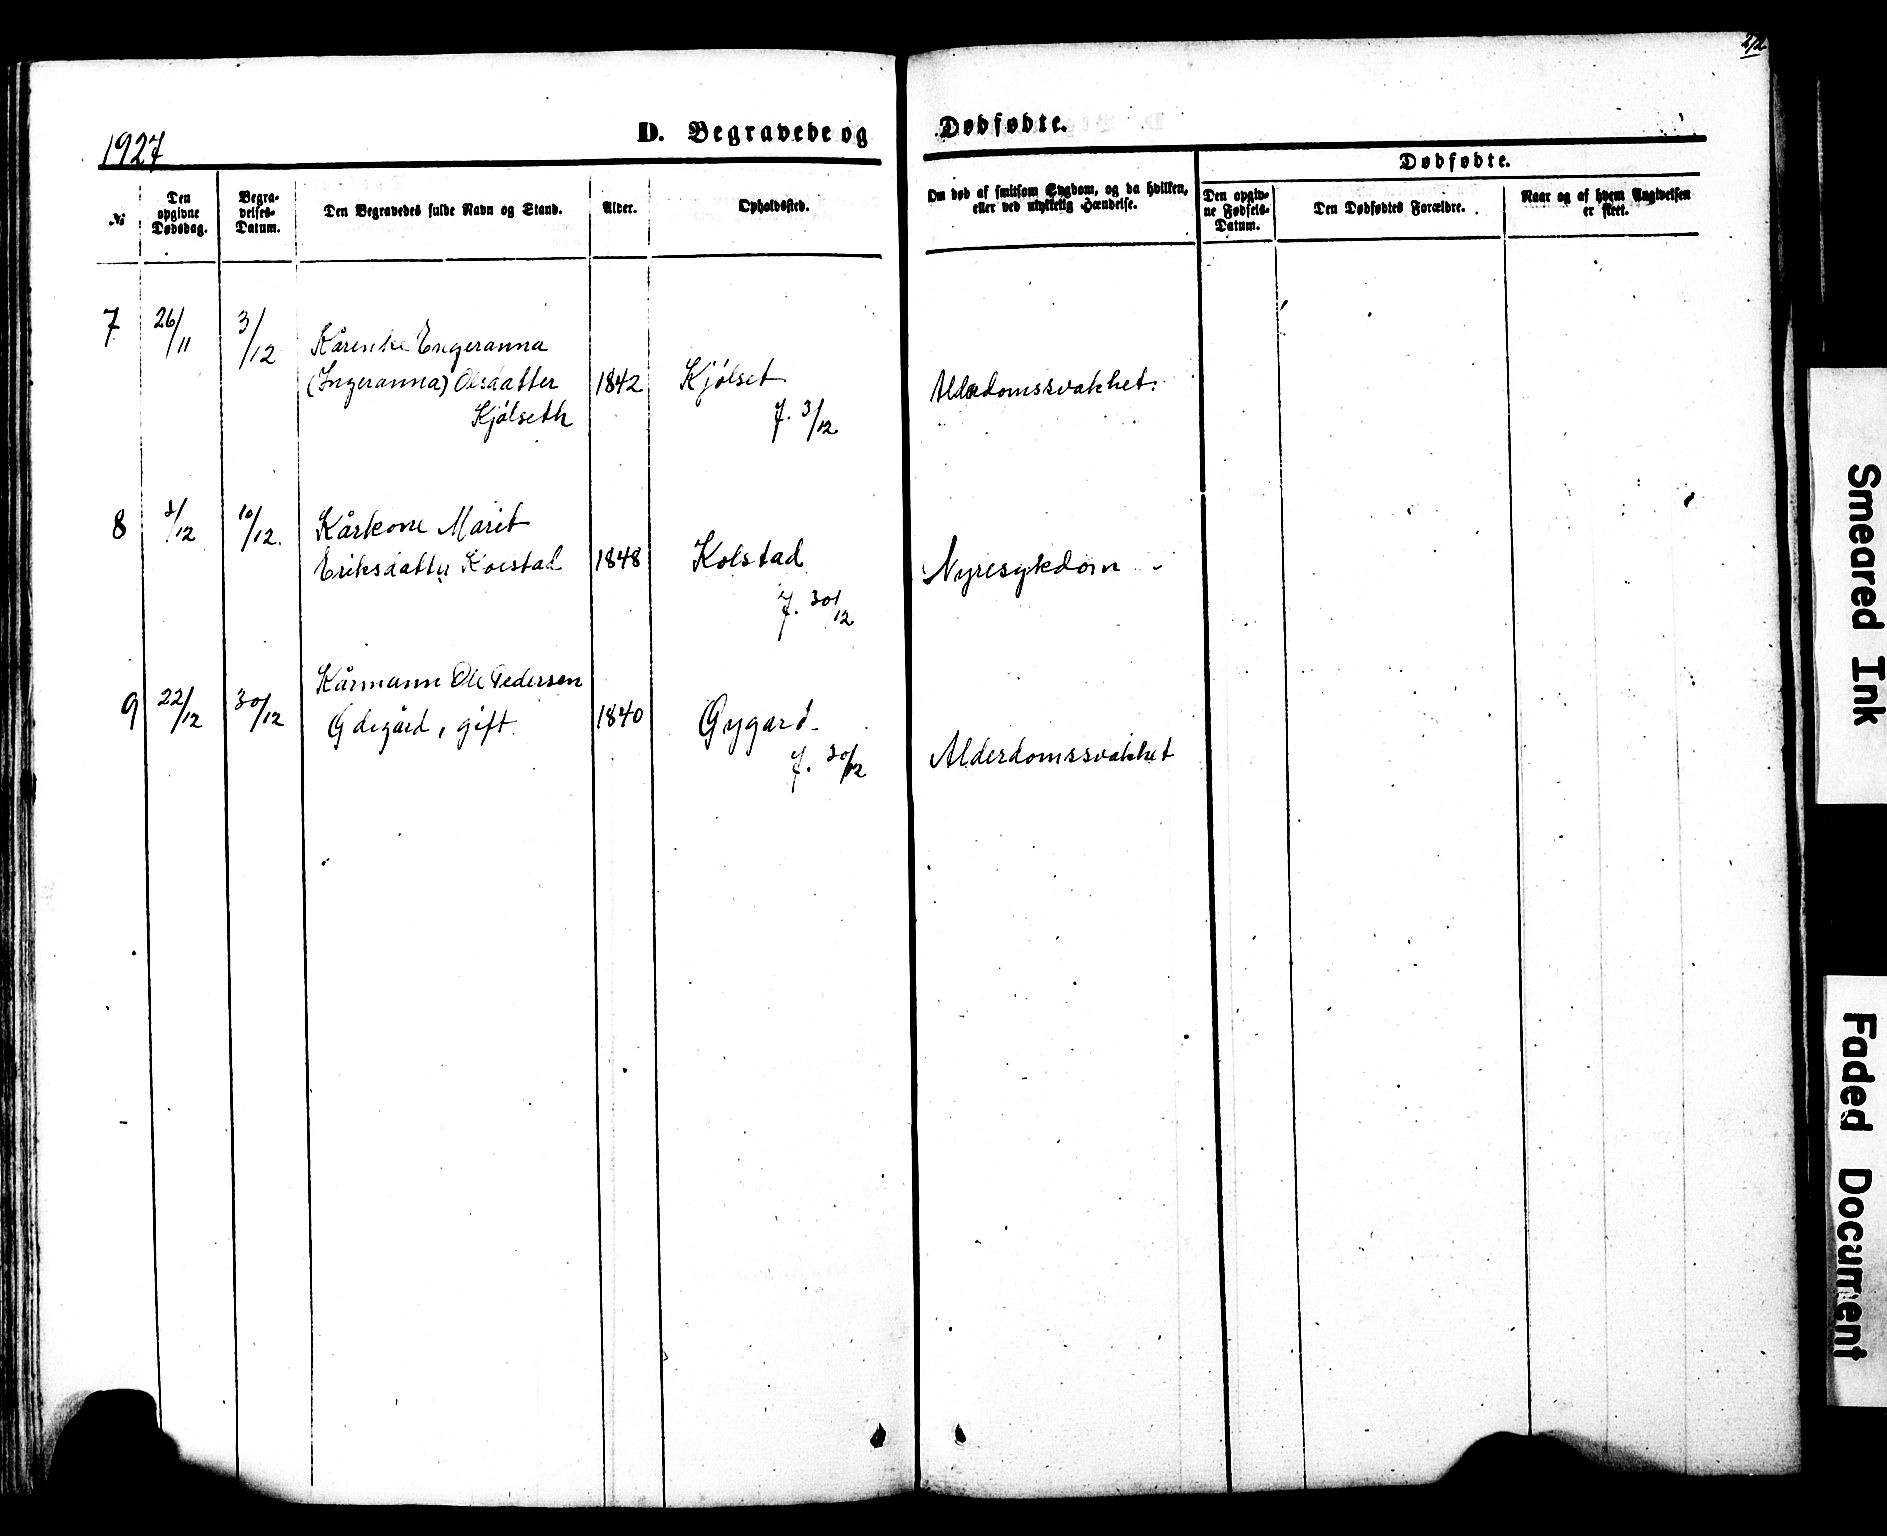 1927
D. Begravede og Dødfødte.
Dødfødte.
№
Den opgivne Dødsdag.
Begra-
velses-
Datum.
Den Begravedes fulde Navn og Stand.
Alder.
Opholdssted.
Om død af smitsom Sygdom, og da hvilken,
eller ved ulykkelig Hændelse.
Den opgiv-
ne Fødsels-
Datum.
Den Dødfødtes Forældre.
Naar og af hvem Angivelsen
er skeet.
7 26/11 3/12 Kårenke Engeranna
(Ingeranna) Olsdatter 1842 Kjølset Alderdomssvakhet.
Kjølseth J. 3/12
8 3/12 10/12. Kårkone Marit
Eriksdatter Kolstad 1848 Kolstad Nyresykdom
J. 30/12
9 22/12 30/12 Kårmann Ole Pedersen
gift. 1840 Gygard
J. 30/12 Alderdomssvakhet
Smeared Ink
Faded Document